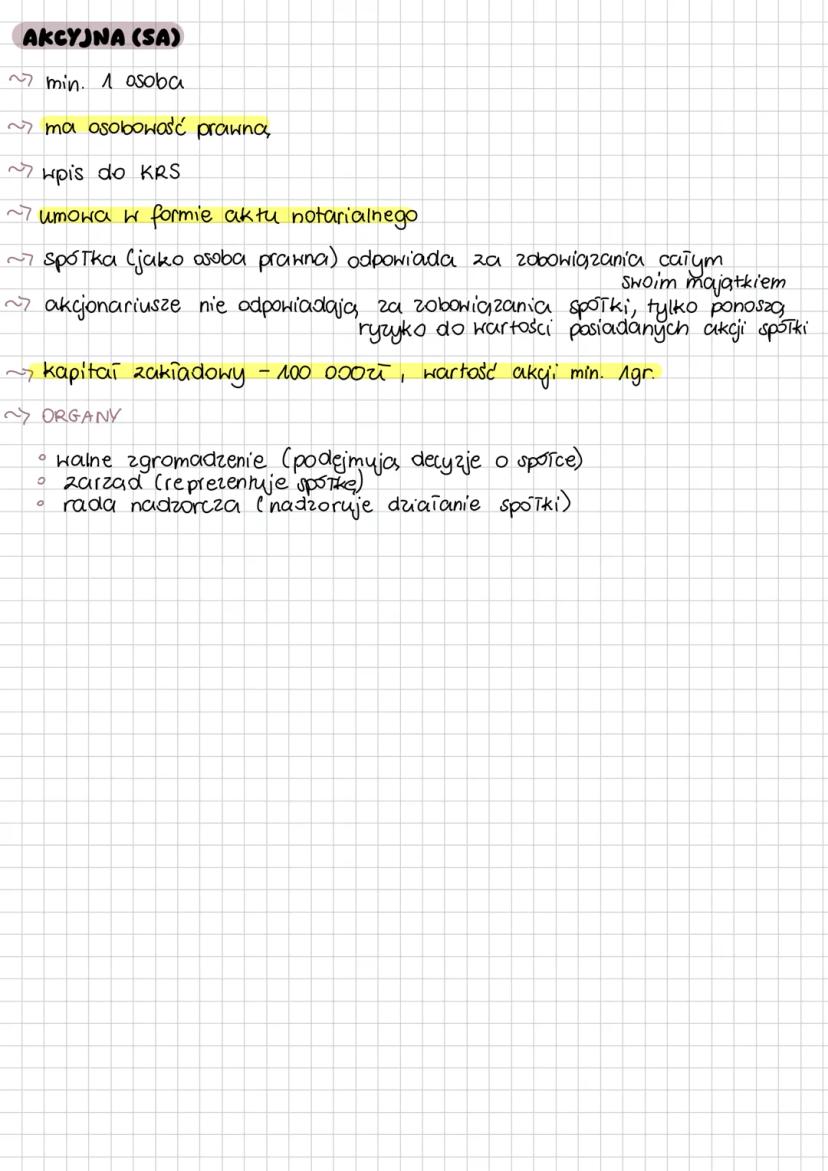 AKCYJNA (SA)
~> min. 1 osoba
~> ma osobowość prawną
~> wpis do KRS
~> umowa w formie aktu notarialnego
~> spółka (jako osoba prawna) odpowiada za zobowiązania całym
swoim majątkiem
~> akcjonariusze nie odpowiadają za zobowiązania spółki, tylko ponoszą
ryzyko do wartości posiadanych akcji spółki
~> kapitał zakładowy - 100 000zł, wartość akcji min. 1gr.
~> ORGANY
◦ walne zgromadzenie (podejmują decyzje o spółce)
◦ zarząd (reprezentuje spółkę)
◦ rada nadzorcza (nadzoruje działanie spółki)